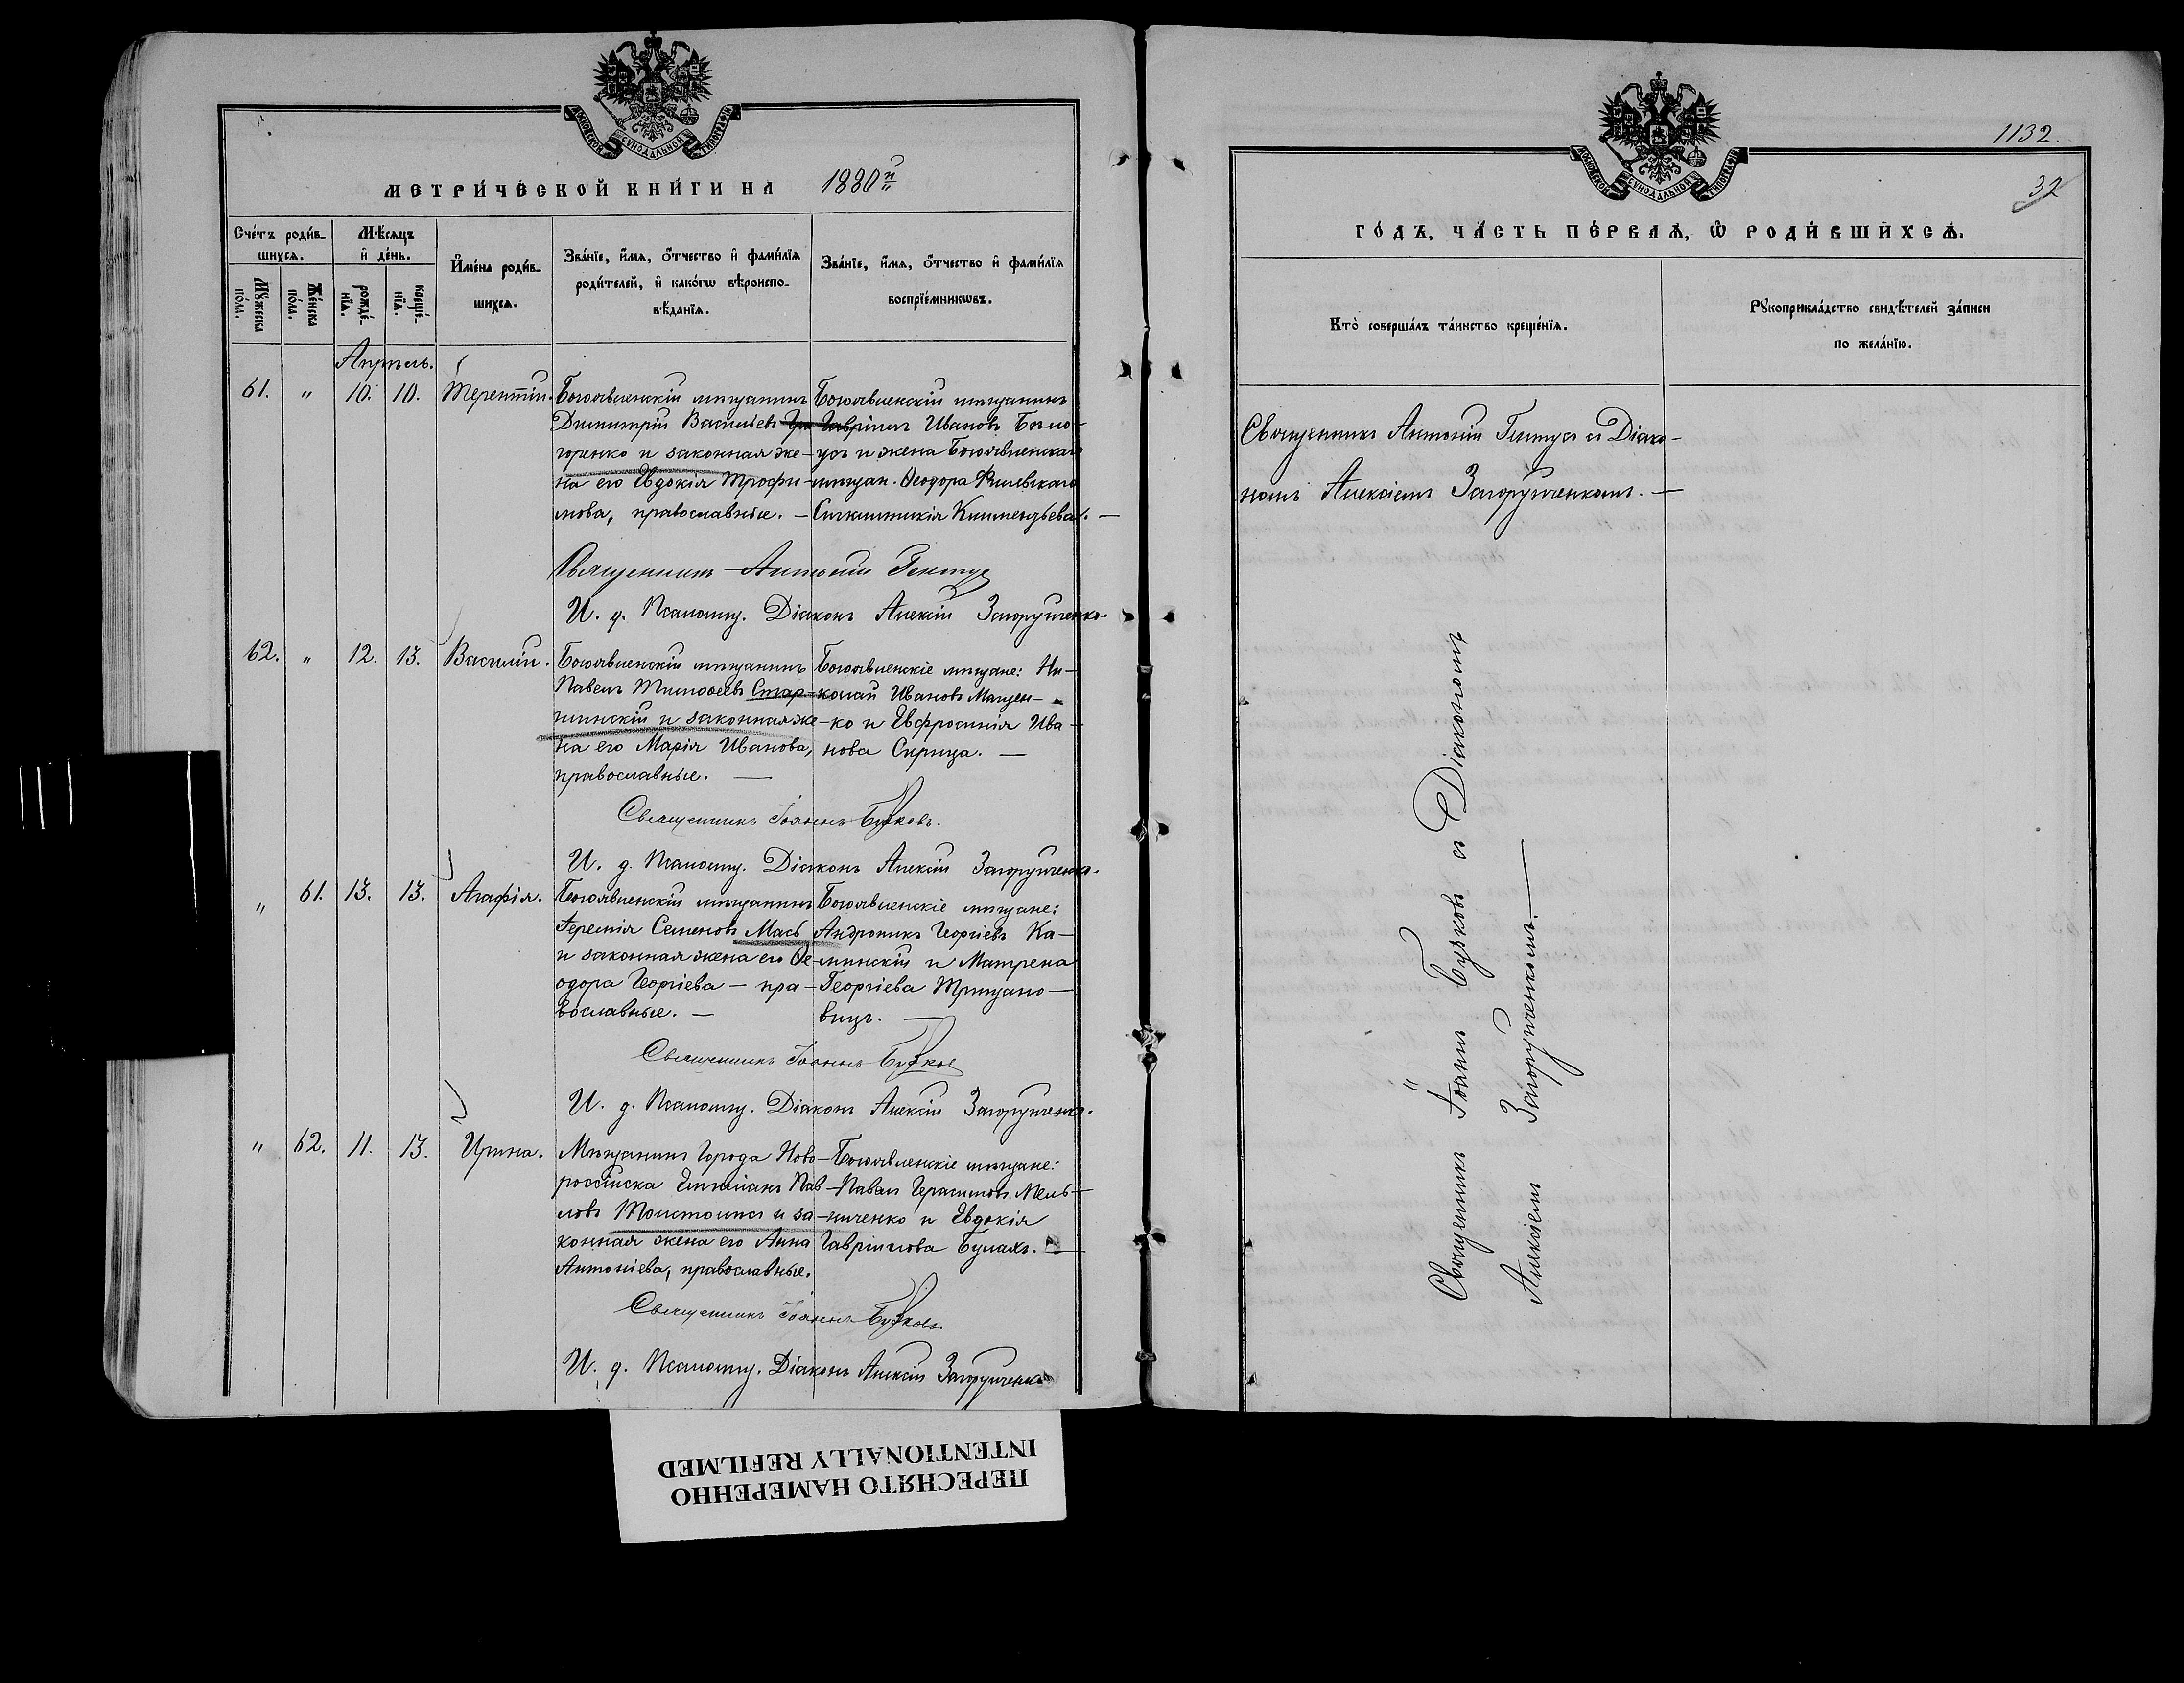 МОСКОВСКОЙ СѴНОДАЛЬНОЙ ТИПОГРАФІИ
МЕТРИ́ЧЕСКОЙ КНИ́ГИ НА 1880й
Сче́тъ роди́в-
шихсѧ.
Мѣ́сѧцъ
и҆ де́нь.
И҆мена̀ роди́в-
шихсѧ.
Зва́нїе, и҆́мѧ, ѻ҆́тчество и҆ фами́лїѧ
роди́телей, и҆ како́гѡ вѣроиспо-
вѣ́данїѧ.
Зва́нїе, и҆́мѧ, ѻ҆́тчество и҆ фами́лїѧ
воспрїе́мникѡвъ.
Мꙋ́жеска
по́ла.
Же́нска
по́ла.
рожде́-
нїѧ.
креще́-
нїѧ.
Апрѣль.
61. " 10. 10. Терентій.
Богоявленскій мѣщанинъ
Димитрій Васильевъ
горенко и законная же-
на его Евдокія Трофи-
мова, православные. —
Богоявленскій мѣщанинъ
Гавріилъ Ивановъ
и жена Богоявленскаго
мѣщан. Ѳеодора
Священникъ Антоній Гентуа
И. д. Псаломщ. Діаконъ Алексій Загорульченко.
62. " 12. 13. Василій.
Богоявленскій мѣщанинъ
Павелъ Тимоѳеевъ Стар-
жинскій и законная же-
на его Марія Иванова,
православные. —
Богоявленскіе мѣщане: Ни-
колай Ивановъ Мацен-
ко и Евфросинія Ива-
нова Скрица. —
Священникъ Іоаннъ Бужковъ.
И. д. Псаломщ. Діаконъ Алексій Загорульченко.
" 61. 13. 13. Агафія.
Богоявленскій мѣщанинъ
Іеремія Семеновъ Мась
и законная жена его Ѳе-
одора Георгіева — пра-
вославные. —
Богоявленскіе мѣщане:
Андроникъ Георгіевъ Ка-
минскій и Матрена
Георгіева Трищано-
вицъ. —
Священникъ Іоаннъ Бужков
И. д. Псаломщ. Діаконъ Алексій Загорульченко.
" 62. 11. 13. Ирина.
Мѣщанинъ города Ново-
россійска Емиліанъ Пав-
ловъ и за-
конная жена его Анна
Антоніева, православные.
Богоявленскіе мѣщане:
Павелъ Герасимовъ Мель-
ниченко и Евдокія
Гавріилова Булахъ. —
Священникъ Іоаннъ Бужковъ.
И. д. Псаломщ. Діаконъ Алексій Загорульченко
1132.
32
МОСКОВСКОЙ СѴНОДАЛЬНОЙ ТИПОГРАФІИ
ГО́ДЪ, ЧА́СТЬ ПЕ́РВАѦ, Ѽ РОДИ́ВШИХСѦ.
Кто̀ соверша́лъ та́инство креще́нїѧ.
Рꙋкоприкла́дство свидѣ́телей за́писи
по жела́нїю.
Священникъ Антоній Гентуа съ Діако-
номъ Алексіемъ Загорульченкомъ. —
Священникъ Іоаннъ Бужковъ съ Діакономъ
Алексіемъ Загорульченкомъ. —
ПЕРЕСНЯТО НАМЕРЕННО
INTENTIONALLY REFILMED